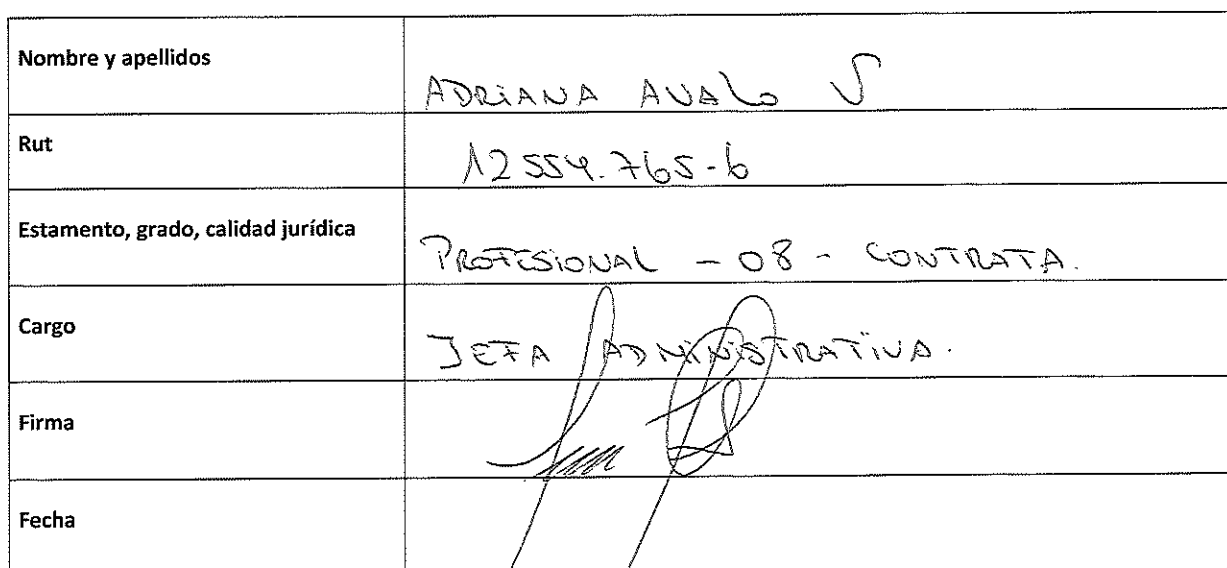 Nombre y apellidos
ADRIANA AVALO V
Rut
12554.765-6
Estamento, grado, calidad jurídica
PROFESIONAL - 08 - CONTRATA.
Cargo
JEFA ADMINISTRATIVA.
Firma
Fecha